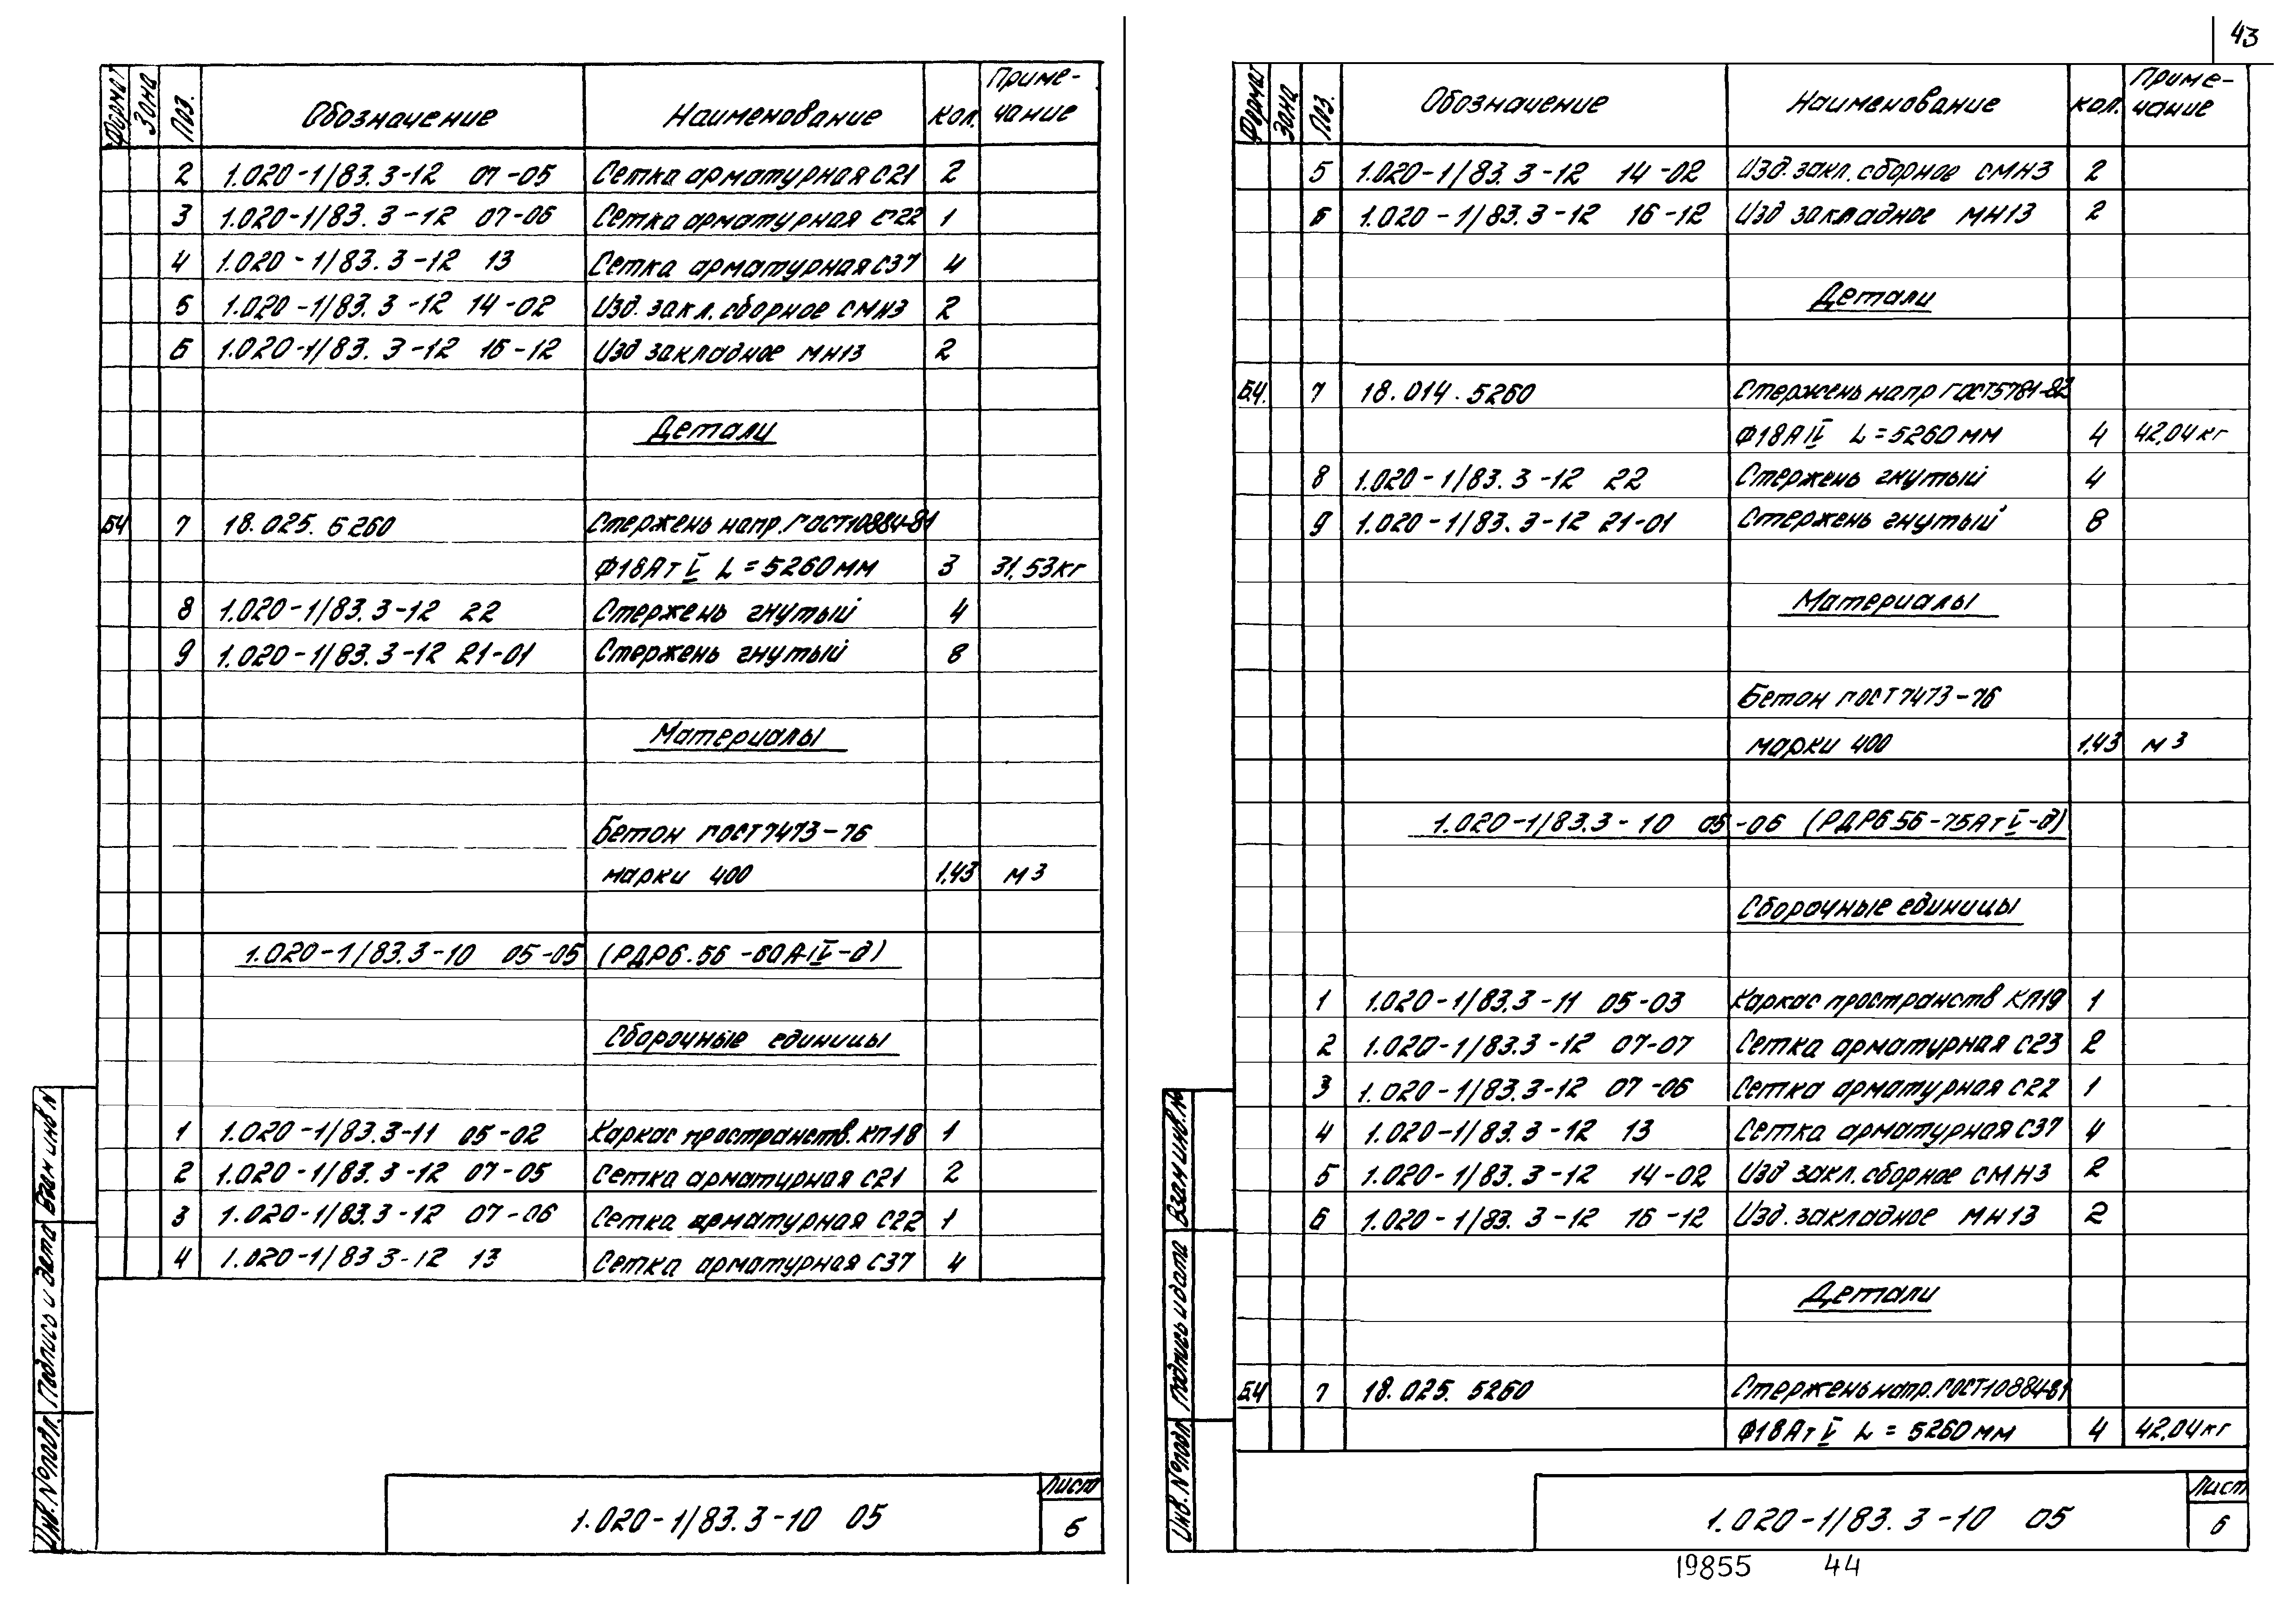 43
Формат Зона Поз. Обозначение Наименование Кол. Приме-
чание
2 1.020-1/83.3-12 07-05 Сетка арматурная С21 2
3 1.020-1/83.3-12 07-06 Сетка арматурная С22 1
4 1.020-1/83.3-12 13 Сетка арматурная С37 4
5 1.020-1/83.3-12 14-02 Изд. закл. сборное СМН3 2
6 1.020-1/83.3-12 16-12 Изд закладное МН13 2
Детали
БЧ 7 18.025.5260 Стержень напр. ГОСТ10884-81
Ф18АтV L=5260мм 3 31,53кг
8 1.020-1/83.3-12 22 Стержень гнутый 4
9 1.020-1/83.3-12 21-01 Стержень гнутый 8
Материалы
Бетон ГОСТ 7473-76
марки 400 1,43 м3
1.020-1/83.3-10 05-05 (РДР6.56-60АIV-д)
Сборочные единицы
1 1.020-1/83.3-11 05-02 Каркас пространств. КП18 1
2 1.020-1/83.3-12 07-05 Сетка арматурная С21 2
3 1.020-1/83.3-12 07-06 Сетка арматурная С22 1
4 1.020-1/83 3-12 13 Сетка арматурная С37 4
Инв. № подл. Подпись и дата Взам инв N
1.020-1/83.3-10 05
Лист
5
Формат Зона Поз. Обозначение Наименование Кол. Приме-
чание
5 1.020-1/83.3-12 14-02 Изд. закл. сборное СМН3 2
6 1.020-1/83.3-12 16-12 Изд закладное МН13 2
Детали
БЧ. 7 18.014.5260 Стержень напр ГОСТ5781-82
Ф18АIV L=5260мм 4 42,04кг
8 1.020-1/83.3-12 22 Стержень гнутый 4
9 1.020-1/83.3-12 21-01 Стержень гнутый 8
Материалы
Бетон ГОСТ 7473-76
марки 400 1,43 м3
1.020-1/83.3-10 05-06 (РДР6.56-75АтV-д)
Сборочные единицы
1 1.020-1/83.3-11 05-03 Каркас пространств КП19 1
2 1.020-1/83.3-12 07-07 Сетка арматурная С23 2
3 1.020-1/83.3-12 07-06 Сетка арматурная С22 1
4 1.020-1/83.3-12 13 Сетка арматурная С37 4
5 1.020-1/83.3-12 14-02 Изд закл. сборное СМН3 2
6 1.020-1/83.3-12 16-12 Изд. закладное МН13 2
Детали
БЧ 7 18.025.5260 Стержень напр. ГОСТ10884-81
Ф18АтV L=5260мм 4 42,04кг
Инв. № подл. Подпись и дата Взам инв. №
1.020-1/83.3-10 05
Лист
6
19855 44